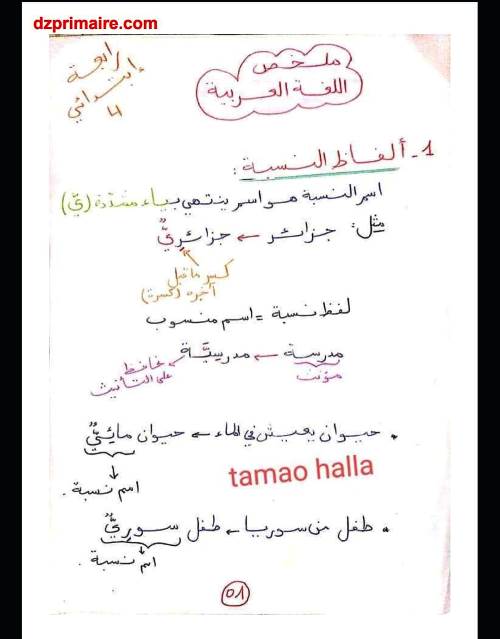 dzprimaire.com
رابعة
إبتدائي
4
ملخص
اللغة العربية
1- ألفاظ النسبة:
اسم النسبة هو اسم ينتهي بياء مشددة (يّ)
مثل: جزائر ← جزائريٌّ
كسر ما قبل
آخره (كسرة)
لفظ نسبة = اسم منسوب
مدرسة ← مدرسيَّة
مؤنث
نحافظ
على التأنيث
• حيوان يعيش في الماء ← حيوان مائيٌّ
اسم نسبة.
tamao halla
• طفل من سوريا ← طفل سوريٌّ
اسم نسبة.
01